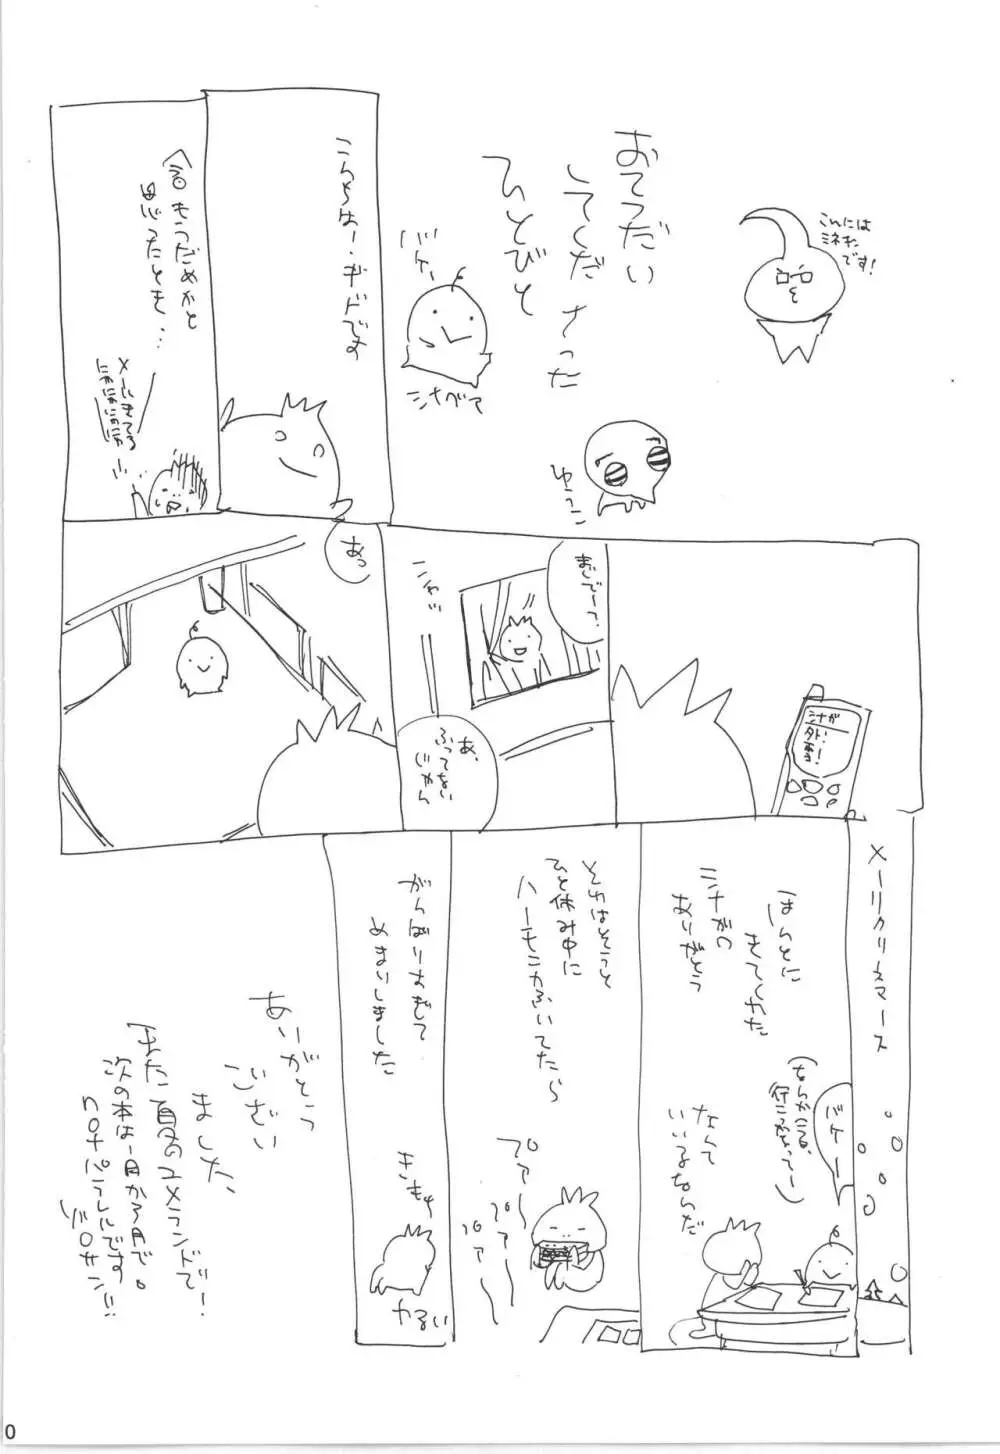 おてつだい
してくださった
ひとびと
こんには
ミネオ
です!
バケー
シナベて
ゆうこ
こんちはー・ギドです
もうだめかと
思ったとき…
メールきてる
にゃにゃにゃにゃ
シナが
外!
雪!
まじでーっ?
あ、
ふってない
じゃん
あっ
メーリクリスマース
ほんとに
きてくれた
シナがの
ありがとう
バケー
行こうかなってー)
なんて
いいるなんだ
それはそうと
ひと休み中に
ハーモニカふいてたら
プァ〜
パァ〜
パァ〜
がんばりすぎて
めまいしました
きもち
わるい
ありがとう
ござい
ました、
また夏のユメランドで!
次の本は一月か3月で。
nロナパラレルです
ゾロサン!!
0